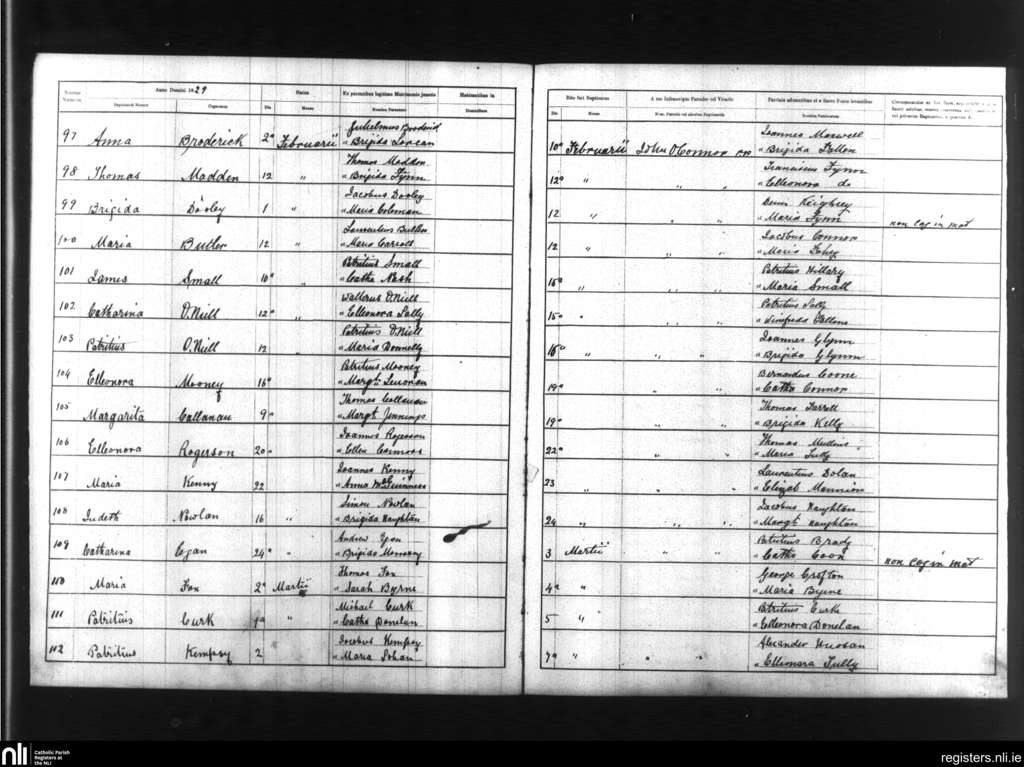 Anno Domini 1829
Natus
Ex parentibus legitimo Matrimonio junctis
Habitantibus in
Baptismi Nomen
Cognomen
Die
Mense
Nomina Parentum
Domicilium
97 Anna Broderick 2ª Februarii Gulielmus Broderick
" Brigida Lorcan
98 Thomas Madden 12 " Thomas Madden
" Brigida Fynn
99 Brigida Dooley 1 " Jacobus Dooley
" Maria Coloman
100 Maria Butler 12 " Laurentius Butler
" Maria Carroll
101 James Small 10ª " Patritius Small
" Catha Nash
102 Catharina O.Niell 12ª " Walterus O.Niell
" Elleonora Tully
103 Patritius O.Niell 12 " Patritius O.Niell
" Maria Donnelly
104 Elleonora Mooney 16ª Patritius Mooney
" Margt
105 Margarita Callanan 9ª Thomas Callanan
" Margt Jennings
106 Elleonora Rogerson 20ª Joannes Rogerson
" Ellen
107 Maria Kenny 22 Joannes Kenny
" Anna McGuinness
108 Judith Nowlan 16 " Simon Nowlan
" Brigida Naughtan
109 Catharina Egan 24ª " Andrew Egan
" Brigida
110 Maria Fox 2ª Martii Thomas Fox
" Sarah Byrne
111 Patritius Curk 1ª " Michael Curk
" Catha Donelan
112 Patritius Kempsy 2 Jacobus Kempsy
" Maria
Rite fuit Baptizatus
A me Infrascripto Parocho vel Vicario
Patrinis adstantibus et e Sacro Fonte levantibus
Die
Mense
Nom. Parochi vel alterius Baptizantis
Nomina Patrinorum
10ª Februarii John O'Connor PP Joannes Maxwell
" Brigida Fallon
12ª " " " Franciscus Fynn
" Elleonora do
12 " " " Denis Keighrey
" Maria Fynn non leg in mat
12 " " " Jacobus Connor
" Maria Fahey
15ª " " " Patritius Hillary
" Maria Small
15ª " " " Patritius Tully
" Winifreda Fallone
16ª " " " Joannes Glynn
" Brigida Glynn
19ª " " Bernardus Coone
" Catha Connor
19ª Thomas Farrell
" Brigida Kelly
22ª " " Thomas Mullins
" Maria Judy
23 " " " Laurentius Dolan
" Elizab Mannion
24 " " " Jacobus Naughtan
" Margt Naughtan
3 Martii " " Patritius Brady
" Catha Coon non leg in mat
4ª " " " George Crofton
" Maria Byrne
5 " " " Patritius Curk
" Elleonora Donelan
7ª " " " Alexander
" Elleonora Tully
nli
Catholic Parish
Registers at
the NLI
registers.nli.ie